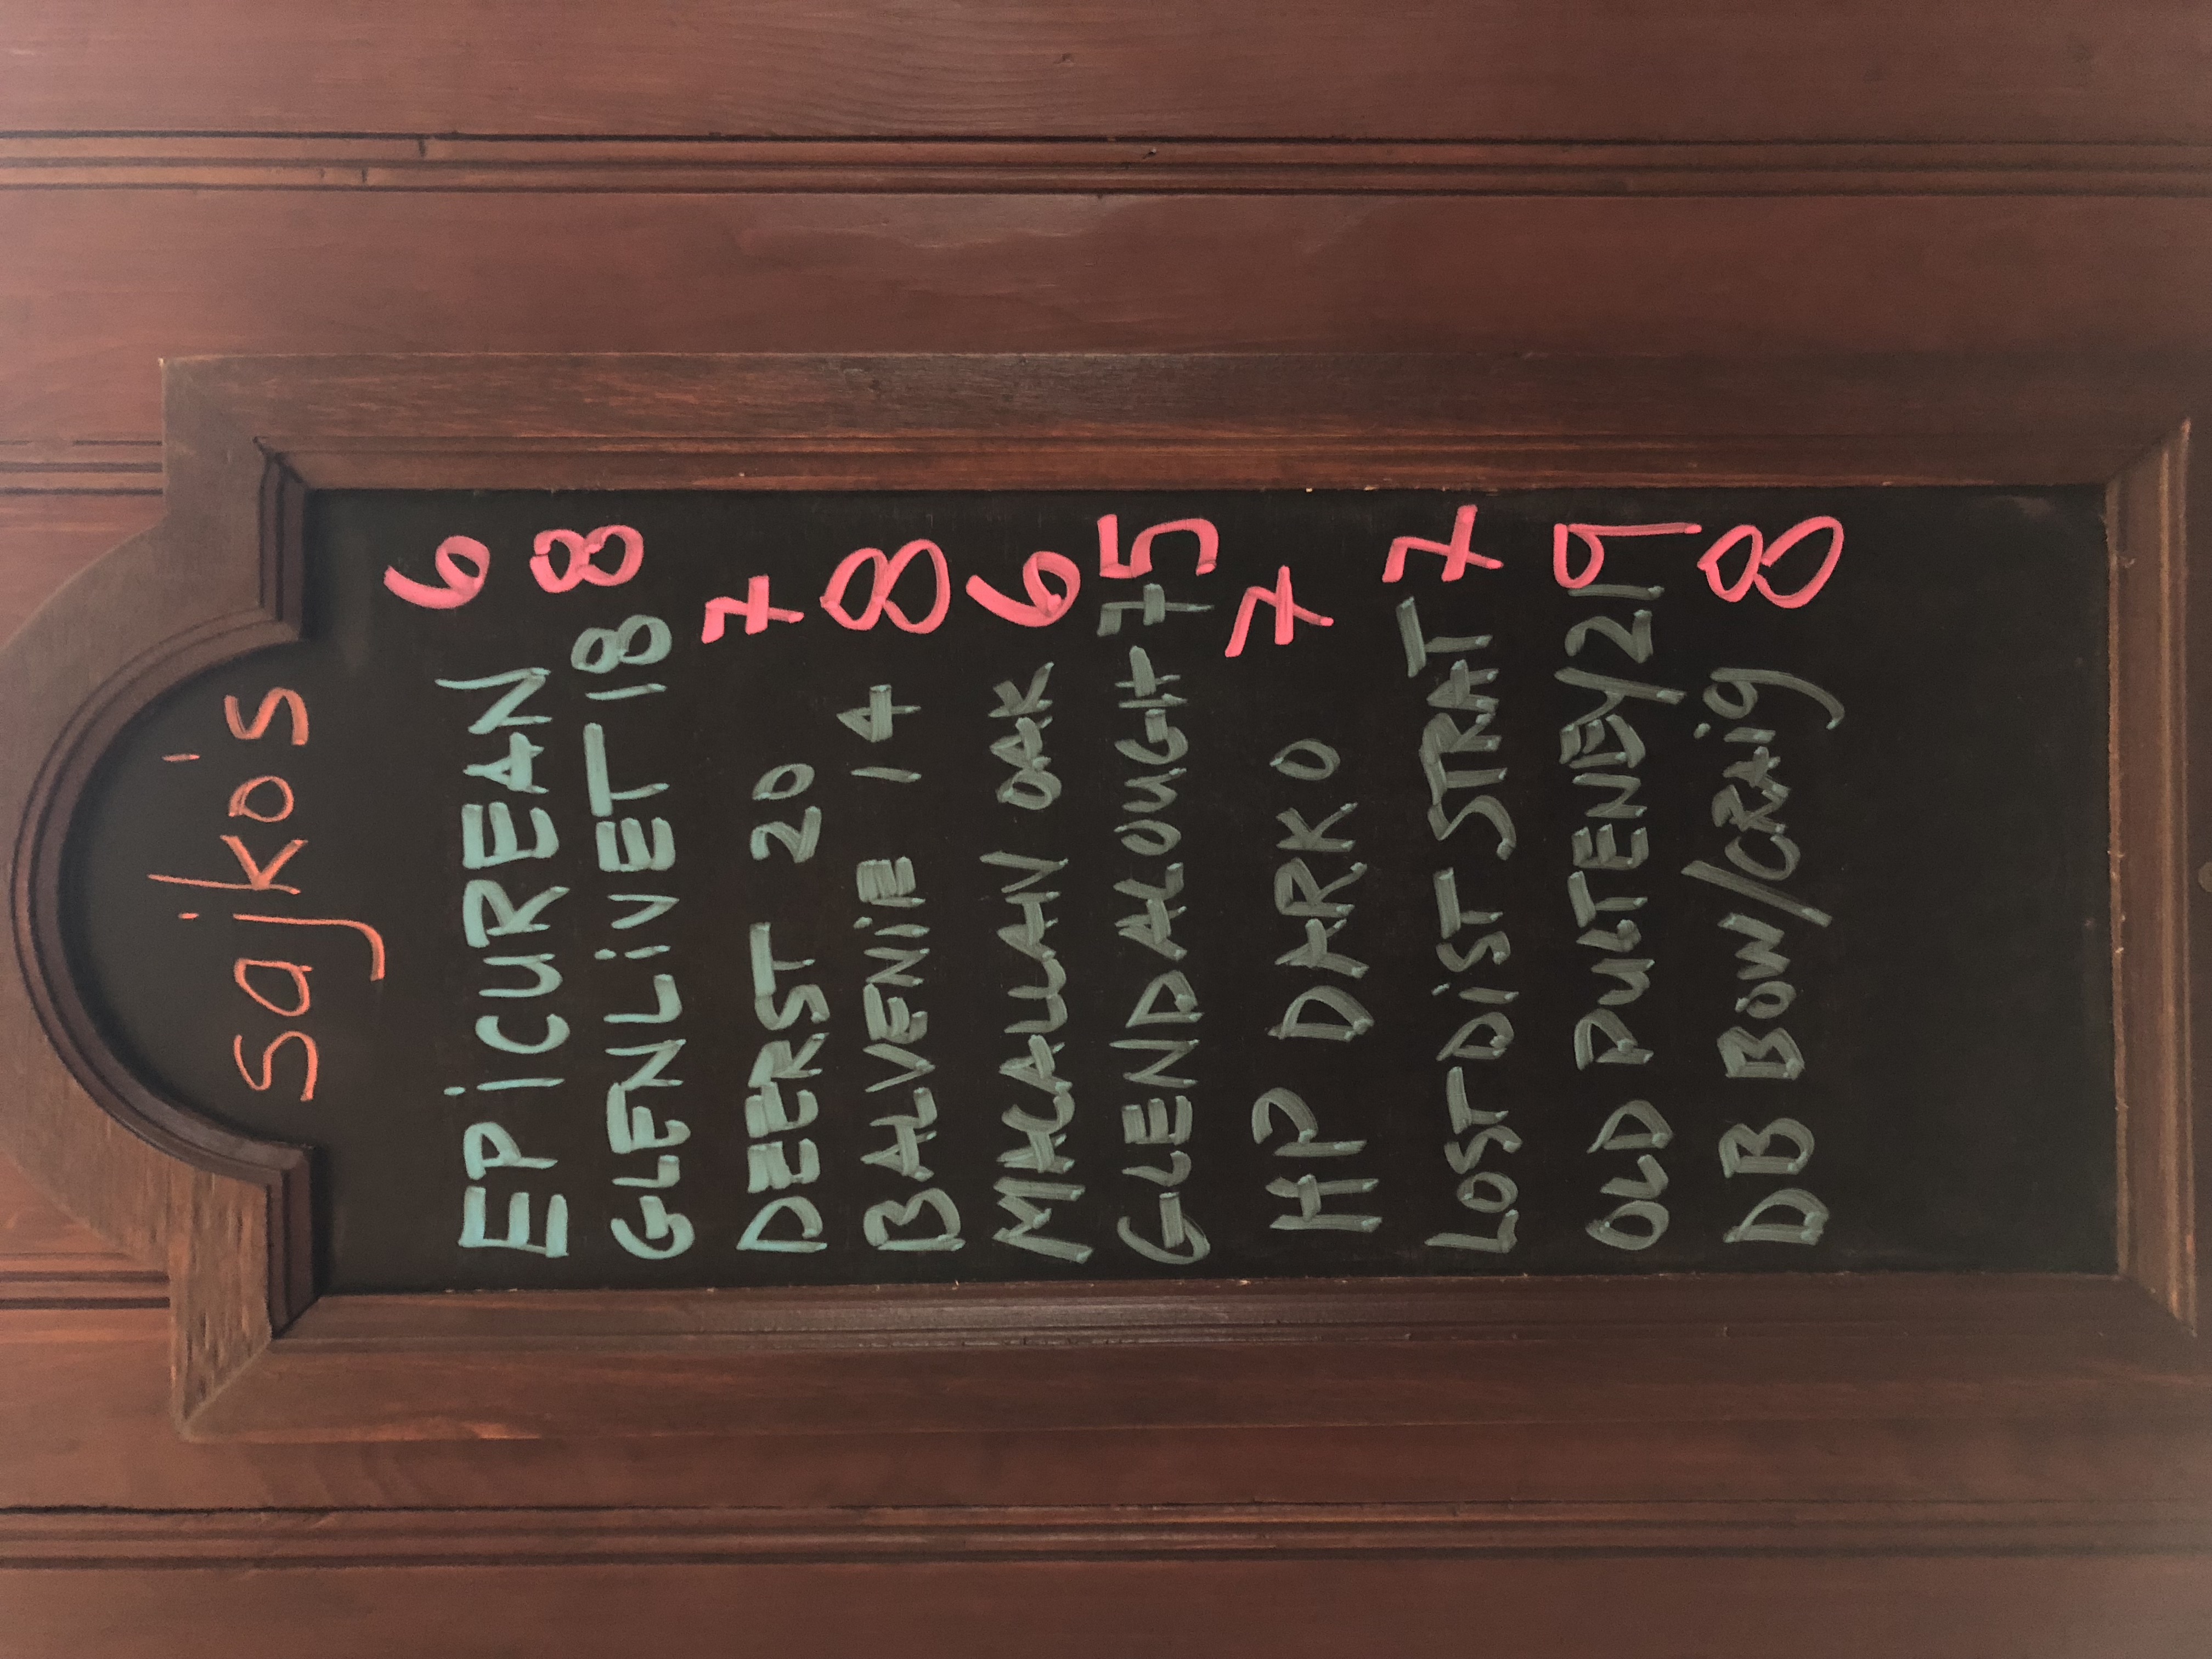 sajko's
EPiCUREAN 6
GLENLiVET 18 8
DEERST 20 7
BALVENiE 14 8
MACALLAN OAK 6
GLENDALOUGH 7 5
HP DARKO 7
LOST DiST STRAT 7
OLD PULTENEY/21 9
DB BOW/CRAig 8